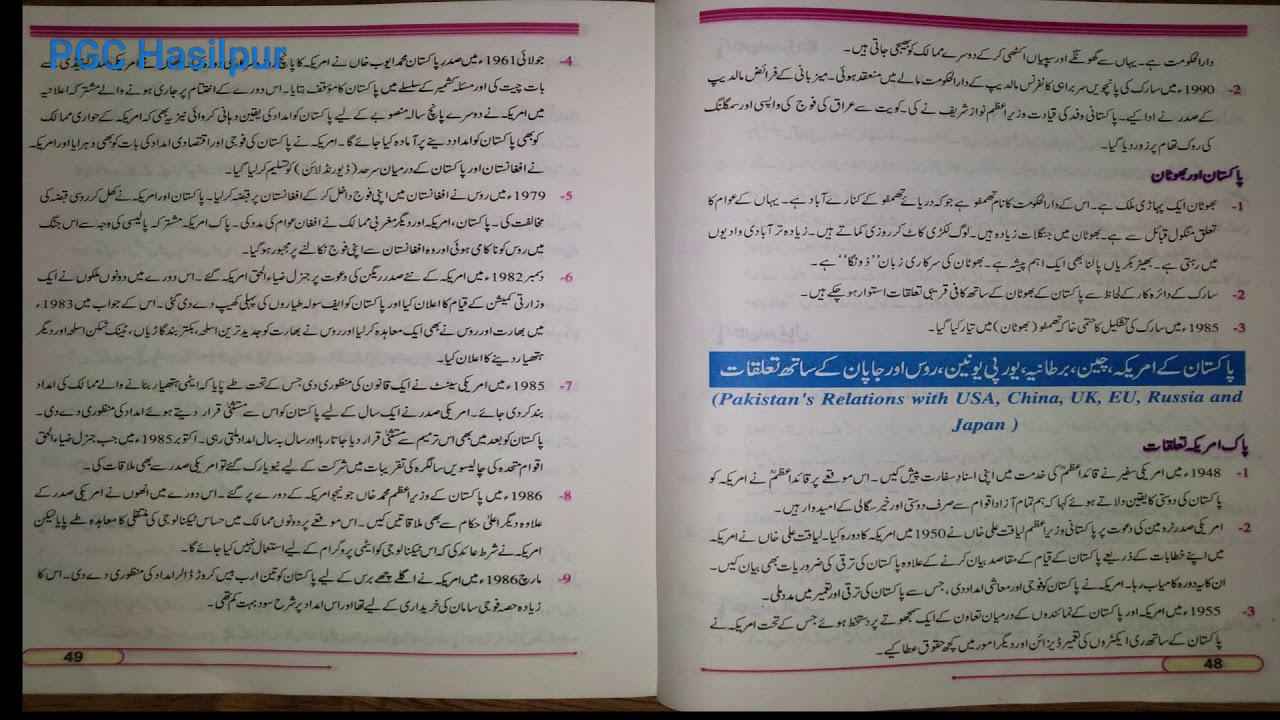 PGC Hasilpur
دارالحکومت ہے۔ یہاں سے گھونگے اور سیپیاں اکٹھی کر کے دوسرے ممالک کو بھیجی جاتی ہیں۔
2- 1990ء میں سارک کی پانچویں سربراہی کانفرنس مالدیپ کے دارالحکومت مالے میں منعقد ہوئی۔ میزبانی کے فرائض مالدیپ
کے صدر نے ادا کیے۔ پاکستانی وفد کی قیادت وزیر اعظم نواز شریف نے کی۔ کویت سے عراق کی فوج کی واپسی اور سمگلنگ
کی روک تھام پر زور دیا گیا۔
پاکستان اور بھوٹان
1- بھوٹان ایک پہاڑی ملک ہے۔ اس کے دارالحکومت کا نام تھمفو ہے جو کہ دریائے تھمفو کے کنارے آباد ہے۔ یہاں کے عوام کا
تعلق منگول قبائل سے ہے۔ بھوٹان میں جنگلات زیادہ ہیں۔ لوگ لکڑی کاٹ کر روزی کماتے ہیں۔ زیادہ تر آبادی وادیوں
میں رہتی ہے۔ بھیڑ بکریاں پالنا بھی ایک اہم پیشہ ہے۔ بھوٹان کی سرکاری زبان ”ڈونگا“ ہے۔
2- سارک کے دائرہ کار کے لحاظ سے پاکستان کے بھوٹان کے ساتھ کافی قریبی تعلقات استوار ہو چکے ہیں۔
3- 1985ء میں سارک کی تشکیل کا حتمی خاکہ تھمفو (بھوٹان) میں تیار کیا گیا۔
پاکستان کے امریکہ، چین، برطانیہ، یورپی یونین، روس اور جاپان کے ساتھ تعلقات
(Pakistan's Relations with USA, China, UK, EU, Russia and
Japan )
پاک امریکہ تعلقات
1- 1948ء میں امریکی سفیر نے قائد اعظمؒ کی خدمت میں اپنی اسناد سفارت پیش کیں۔ اس موقعے پر قائد اعظمؒ نے امریکہ کو
پاکستان کی دوستی کا یقین دلاتے ہوئے کہا کہ ہم تمام آزاد اقوام سے صرف دوستی اور خیر سگالی کے امیدوار ہیں۔
2- امریکی صدر ٹرومین کی دعوت پر پاکستانی وزیر اعظم لیاقت علی خاں نے 1950 میں امریکہ کا دورہ کیا۔ لیاقت علی خاں نے امریکہ
میں اپنے خطابات کے ذریعے پاکستان کے قیام کے مقاصد بیان کرنے کے علاوہ پاکستان کی ترقی کی ضروریات بھی بیان کیں۔
ان کا یہ دورہ کامیاب رہا۔ امریکہ نے پاکستان کو فوجی اور معاشی امداد دی، جس سے پاکستان کی ترقی اور تعمیر میں مدد ملی۔
3- 1955ء میں امریکہ اور پاکستان کے نمائندوں کے درمیان تعاون کے ایک سمجھوتے پر دستخط ہوئے جس کے تحت امریکہ نے
پاکستان کے ساتھ ری ایکٹروں کی تعمیر ڈیزائن اور دیگر امور میں کچھ حقوق عطا کیے۔
48
4- جولائی 1961ء میں صدر پاکستان محمد ایوب خاں نے امریکہ کا پانچ
بات چیت کی اور مسئلہ کشمیر کے سلسلے میں پاکستان کا مؤقف بتایا۔ اس دورے کے اختتام پر جاری ہونے والے مشترکہ اعلانیہ
میں امریکہ نے دوسرے پانچ سالہ منصوبے کے لیے پاکستان کو امداد کی یقین دہانی کروائی نیز یہ بھی کہ امریکہ کے حواری ممالک
کو بھی پاکستان کو امداد دینے پر آمادہ کیا جائے گا۔ امریکہ نے پاکستان کی فوجی اور اقتصادی امداد کی بات کو بھی دہرایا اور امریکہ
نے افغانستان اور پاکستان کے درمیان سرحد (ڈیورنڈ لائن) کو تسلیم کر لیا گیا۔
5- 1979ء میں روس نے افغانستان میں اپنی فوج داخل کر کے افغانستان پر قبضہ کر لیا۔ پاکستان اور امریکہ نے کھل کر روسی قبضہ کی
مخالفت کی۔ پاکستان، امریکہ اور دیگر مغربی ممالک نے افغان عوام کی مدد کی۔ پاک امریکہ مشترکہ پالیسی کی وجہ سے اس جنگ
میں روس کو ناکامی ہوئی اور وہ افغانستان سے اپنی فوج نکالنے پر مجبور ہو گیا۔
6- دسمبر 1982ء میں امریکہ کے نئے صدر ریگن کی دعوت پر جنرل ضیاء الحق امریکہ گئے۔ اس دورے میں دونوں ملکوں نے ایک
وزارتی کمیشن کے قیام کا اعلان کیا اور پاکستان کو ایف سولہ طیاروں کی پہلی کھیپ دے دی گئی۔ اس کے جواب میں 1983ء
میں بھارت اور روس نے بھی ایک معاہدہ کر لیا اور روس نے بھارت کو جدید ترین اسلحہ، بکتر بند گاڑیاں، ٹینک شکن اسلحہ اور دیگر
ہتھیار دینے کا اعلان کیا۔
7- 1985ء میں امریکی سینٹ نے ایک قانون کی منظوری دی جس کے تحت طے پایا کہ ایٹمی ہتھیار بنانے والے ممالک کی امداد
بند کر دی جائے۔ امریکی صدر نے ایک سال کے لیے پاکستان کو اس سے مستثنیٰ قرار دیتے ہوئے امداد کی منظوری دے دی۔
پاکستان کو بعد میں بھی اس ترمیم سے مستثنیٰ قرار دیا جاتا رہا اور سال بہ سال امداد ملتی رہی۔ اکتوبر 1985ء میں جب جنرل ضیاء الحق
اقوام متحدہ کی چالیسویں سالگرہ کی تقریبات میں شرکت کے لیے نیویارک گئے تو امریکی صدر سے بھی ملاقات کی۔
8- 1986ء میں پاکستان کے وزیر اعظم محمد خاں جونیجو امریکہ کے دورے پر گئے۔ اس دورے میں انھوں نے امریکی صدر کے
علاوہ دیگر اعلیٰ حکام سے بھی ملاقاتیں کیں۔ اس موقعے پر دونوں ممالک میں حساس ٹیکنالوجی کی منتقلی کا معاہدہ طے پایا لیکن
امریکہ نے شرط عائد کی کہ اس ٹیکنالوجی کو ایٹمی پروگرام کے لیے استعمال نہیں کیا جائے گا۔
9- مارچ 1986ء میں امریکہ نے اگلے چھے برس کے لیے پاکستان کو تین ارب بیس کروڑ ڈالر امداد کی منظوری دے دی۔ اس کا
زیادہ حصہ فوجی سامان کی خریداری کے لیے تھا اور اس امداد پر شرح سود بہت کم تھی۔
49